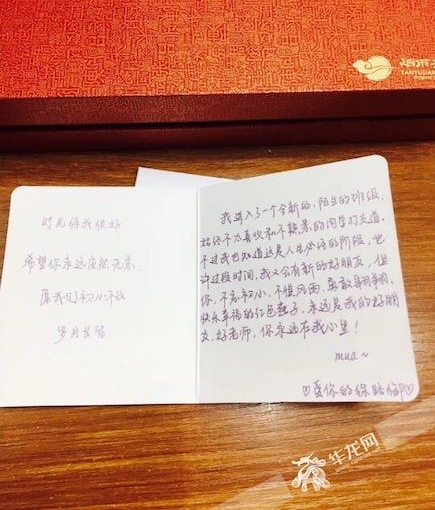 时光待我很好
希望你永远安然无恙
愿我们初心不改
岁月长留
我进入了一个全新的,陌生的班级,
始终不太喜欢和不熟悉的同学打交道。
不过我也知道这是人生必经的阶段,也
许过段时间,我又会有新的好朋友,但
你,不忘初心,不惧风雨,勇敢
快乐幸福的红包鞋子,永远是我的好朋
友,好老师,你永远在我心里!
mua~
♡爱你的
华龙网